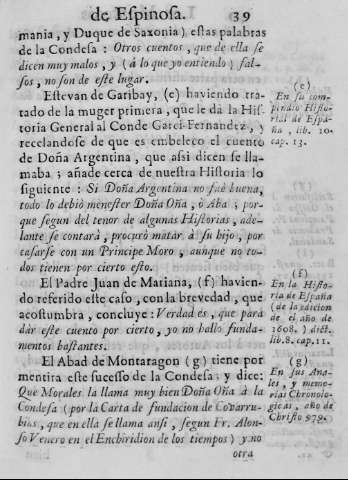 de Espinosa. 39
mania, y Duque de Saxonia) estas palabras
de la Condesa: Otros cuentos, que de ella se
dicen muy malos, y (à lo que yo entiendo) fal-
sos, no son de este lugar.
Estevan de Garibay, (e) haviendo tra-
tado de la muger primera, que le dà la His-
toria General al Conde Garci-Fernandez, y
recelandose de que es embeleco el cuento
de Doña Argentina, que assi dicen se lla-
maba; añade cerca de nuestra Historia lo
siguiente: Si Doña Argentina no fue buena,
todo lo debiò menester Doña Oña, ò Aba; por-
que segun del tenor de algunas Historias, ade-
lante se contarà, procurò matar à su hijo, por
casarse con un Principe Moro, aunque no to-
dos tienen por cierto esto.
El Padre Juan de Mariana, (f) havien-
do referido este caso, con la brevedad, que
acostumbra, concluye: Verdad es, que para
dár este cuento por cierto, yo no hallo funda-
mentos bastantes.
El Abad de Montaragon (g) tiene por
mentira este sucesso de la Condesa; y dice:
Que Morales la llama muy bien Doña Oña à la
Condesa (por la Carta de fundacion de Covarru-
bias, que en ella se llama ansi, segun Fr. Alon-
so Venero en el Enchiridion de los tiempos) y no
otra
(e)
En su com-
pendio Histo-
rial de Espa-
ña, lib. 10.
cap. 13.
(f)
En la Histo-
ria de España
(de la edicion
de el año de
1608.) dict.
lib. 8. cap. 11.
(g)
En sus Ana-
les, y memo-
rias Chronolo-
gicas, año de
Christo 979.